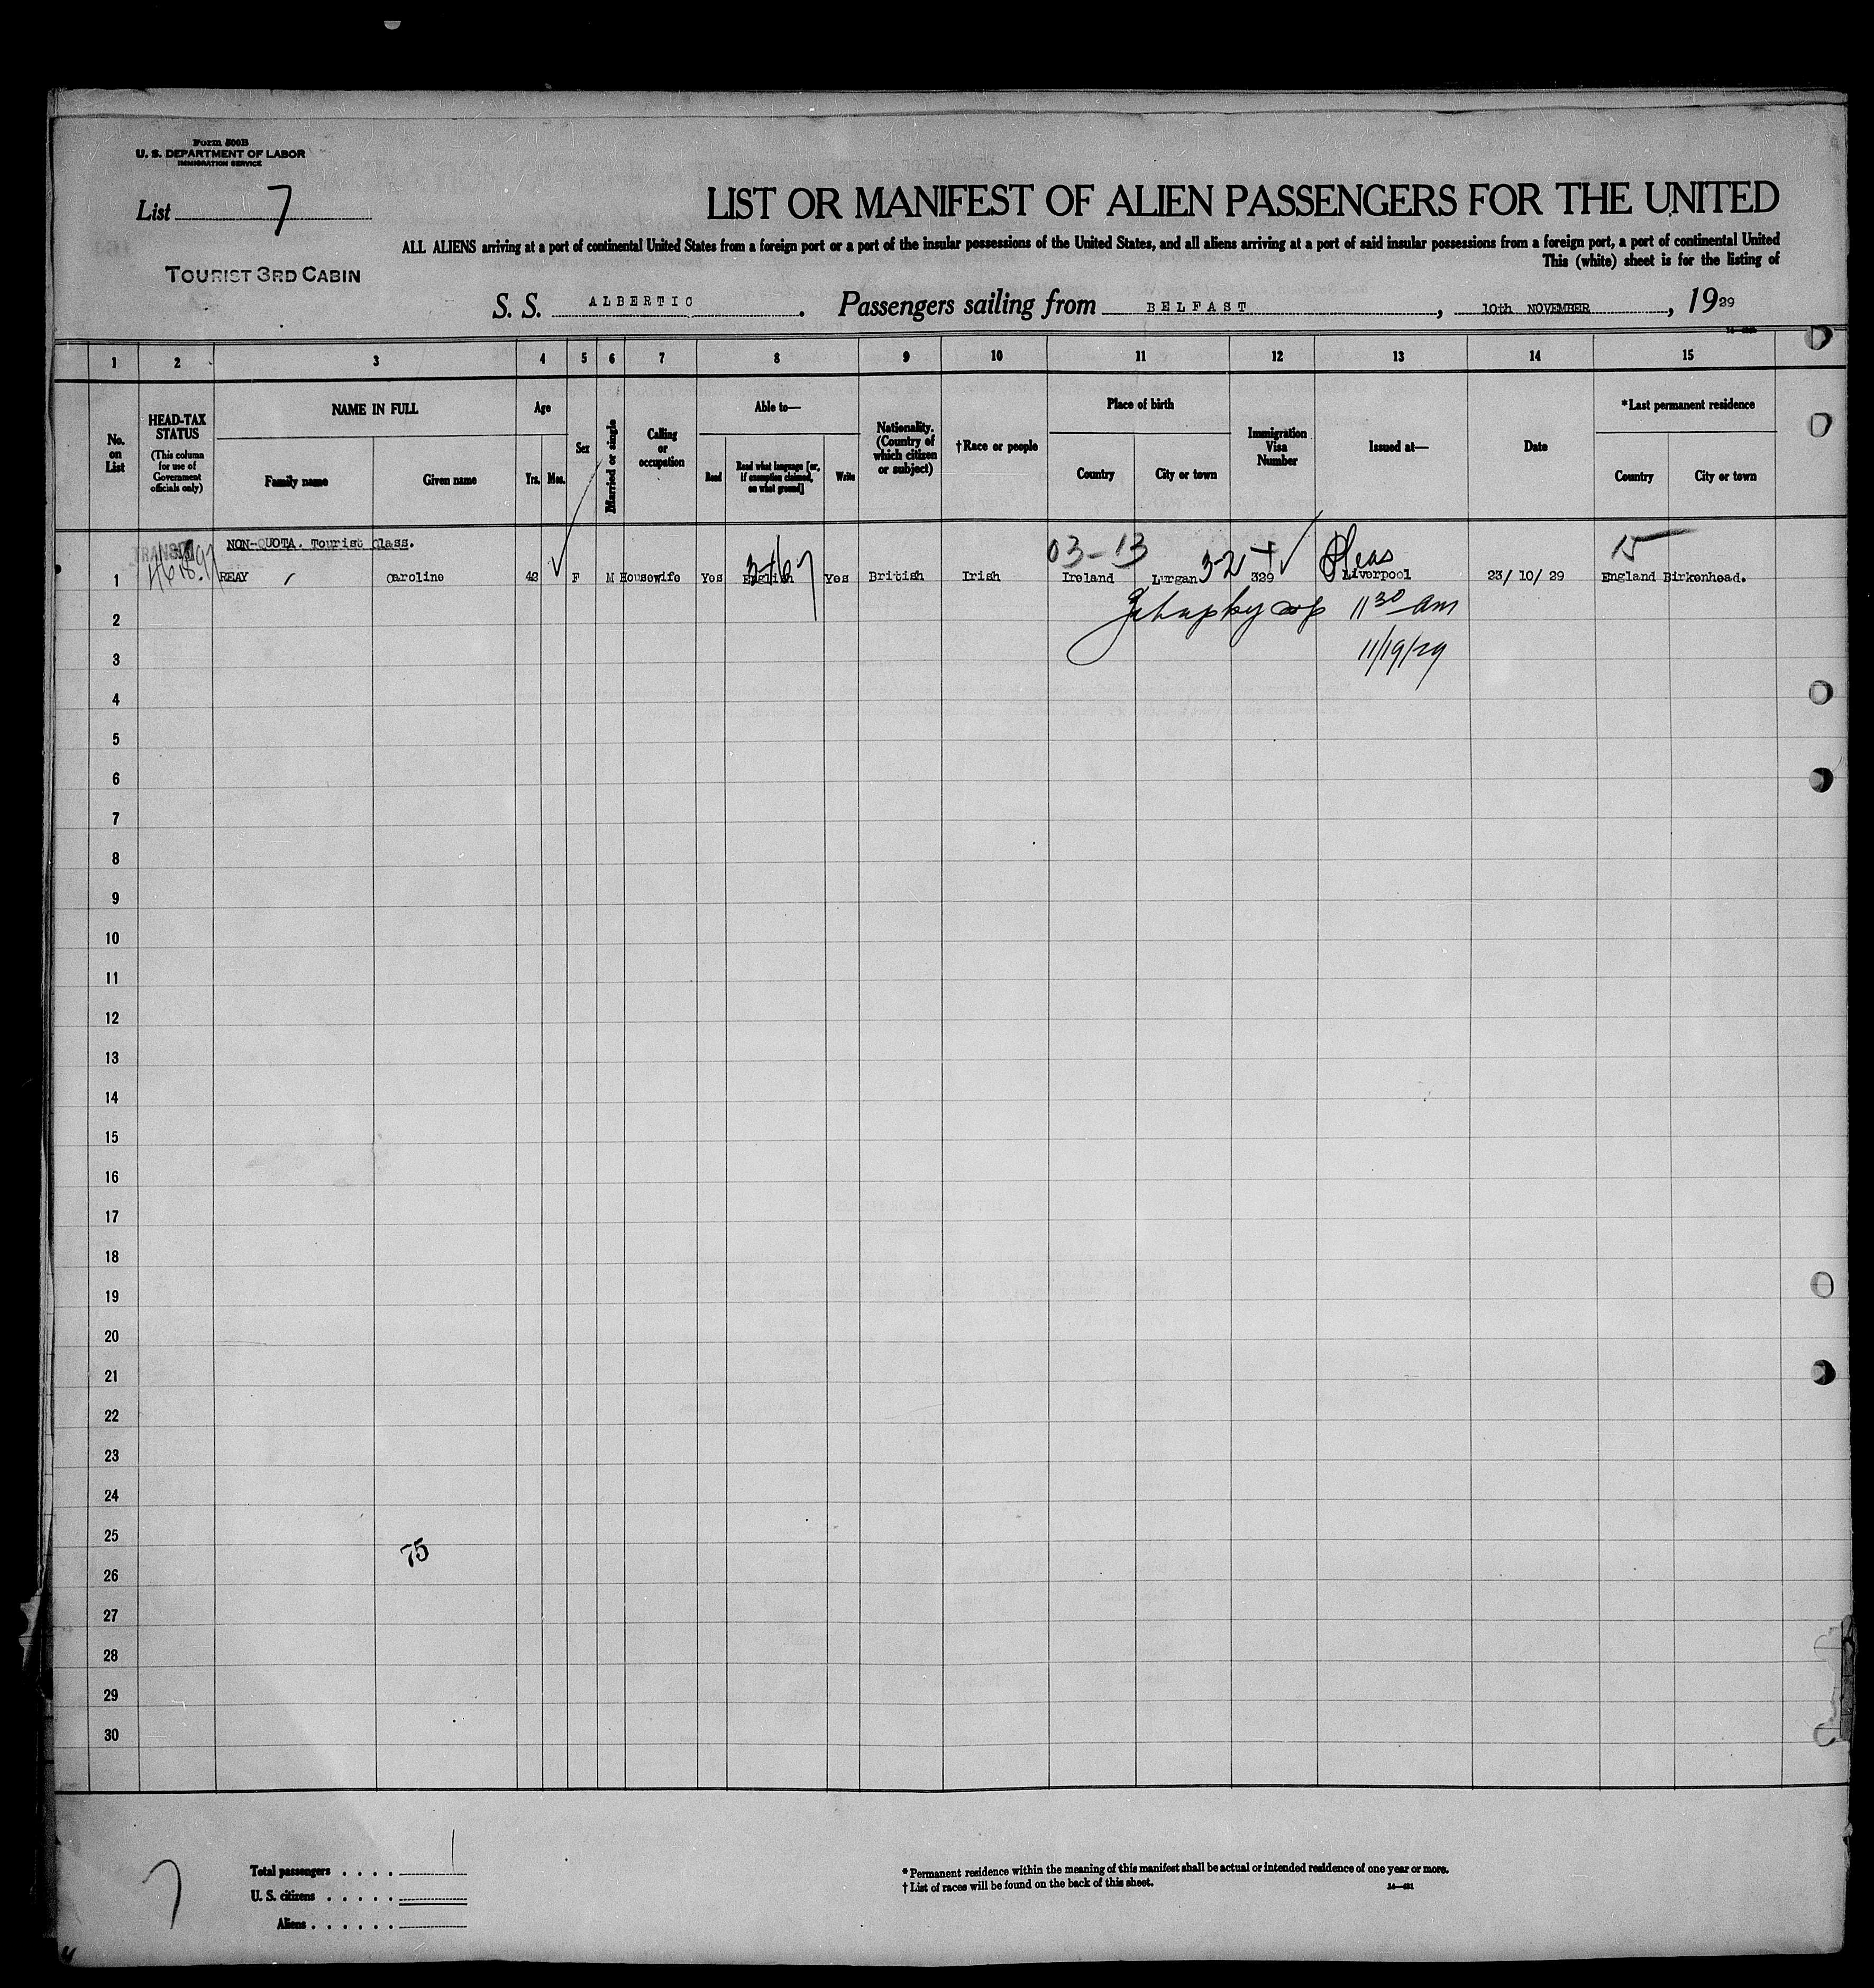 Form 500B
U. S. DEPARTMENT OF LABOR
IMMIGRATION SERVICE
List 7
LIST OR MANIFEST OF ALIEN PASSENGERS FOR THE UNITED
ALL ALIENS arriving at a port of continental United States from a foreign port or a port of the insular possessions of the United States, and all aliens arriving at a port of said insular possessions from a foreign port, a port of continental United
This (white) sheet is for the listing of
TOURIST 3RD CABIN
S. S. ALBERTIC. Passengers sailing from BELFAST, 10th NOVEMBER, 1929
1 2 3 4 5 6 7 8 9 10 11 12 13 14 15
No. on List
HEAD-TAX STATUS (This column for use of Government officials only)
NAME IN FULL
Family name
Given name
Age
Yrs. Mos.
Sex
Married or single
Calling or occupation
Able to—
Read
Read what language [or, if exemption claimed, on what ground]
Write
Nationality. (Country of which citizen or subject)
†Race or people
Place of birth
Country
City or town
Immigration Visa Number
Issued at—
Date
*Last permanent residence
Country
City or town
TRANSIT
NON-QUOTA. Tourist Class.
03-13
15
1 REAY Caroline 42 F M Housewife Yes English Yes British Irish Ireland Lurgan 3-2 329 Liverpool 23/ 10/ 29 England Birkenhead.
2 11 30 am
3 11/19/29
4
5
6
7
8
9
10
11
12
13
14
15
16
17
18
19
20
21
22
23
24
25
75
26
27
28
29
30
Total passengers . . . . 1
U. S. citizens . . . . .
Aliens . . . . . .
7
* Permanent residence within the meaning of this manifest shall be actual or intended residence of one year or more.
† List of races will be found on the back of this sheet.